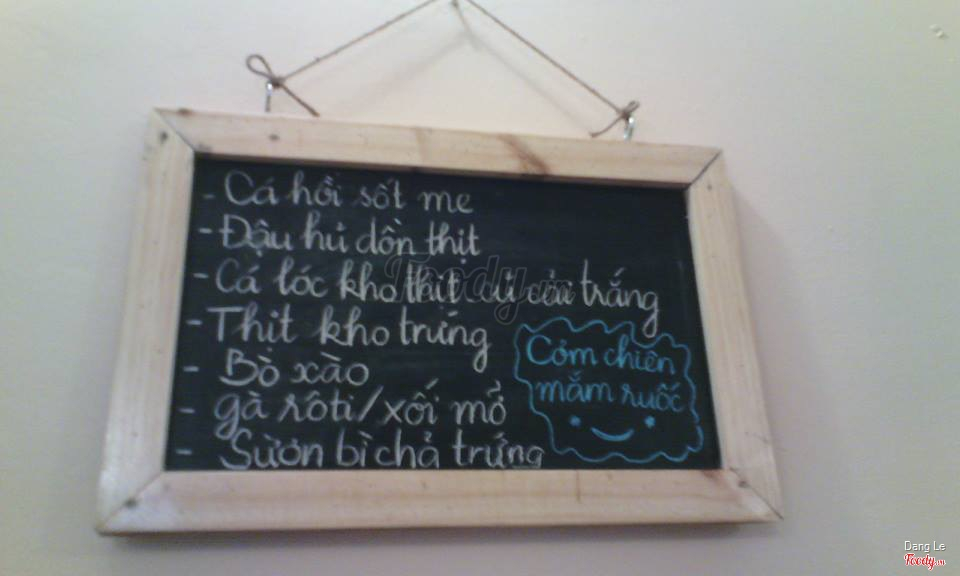 - Cá hồi sốt me
- Đậu hủ dồn thịt
- Cá lóc kho thịt củ cải trắng
- Thịt kho trứng
- Bò xào
- gà rôti/xối mở
- Sườn bì chả trứng
Cơm chiên
mắm ruốc
Foody.vn
Dang Le
Foody.vn